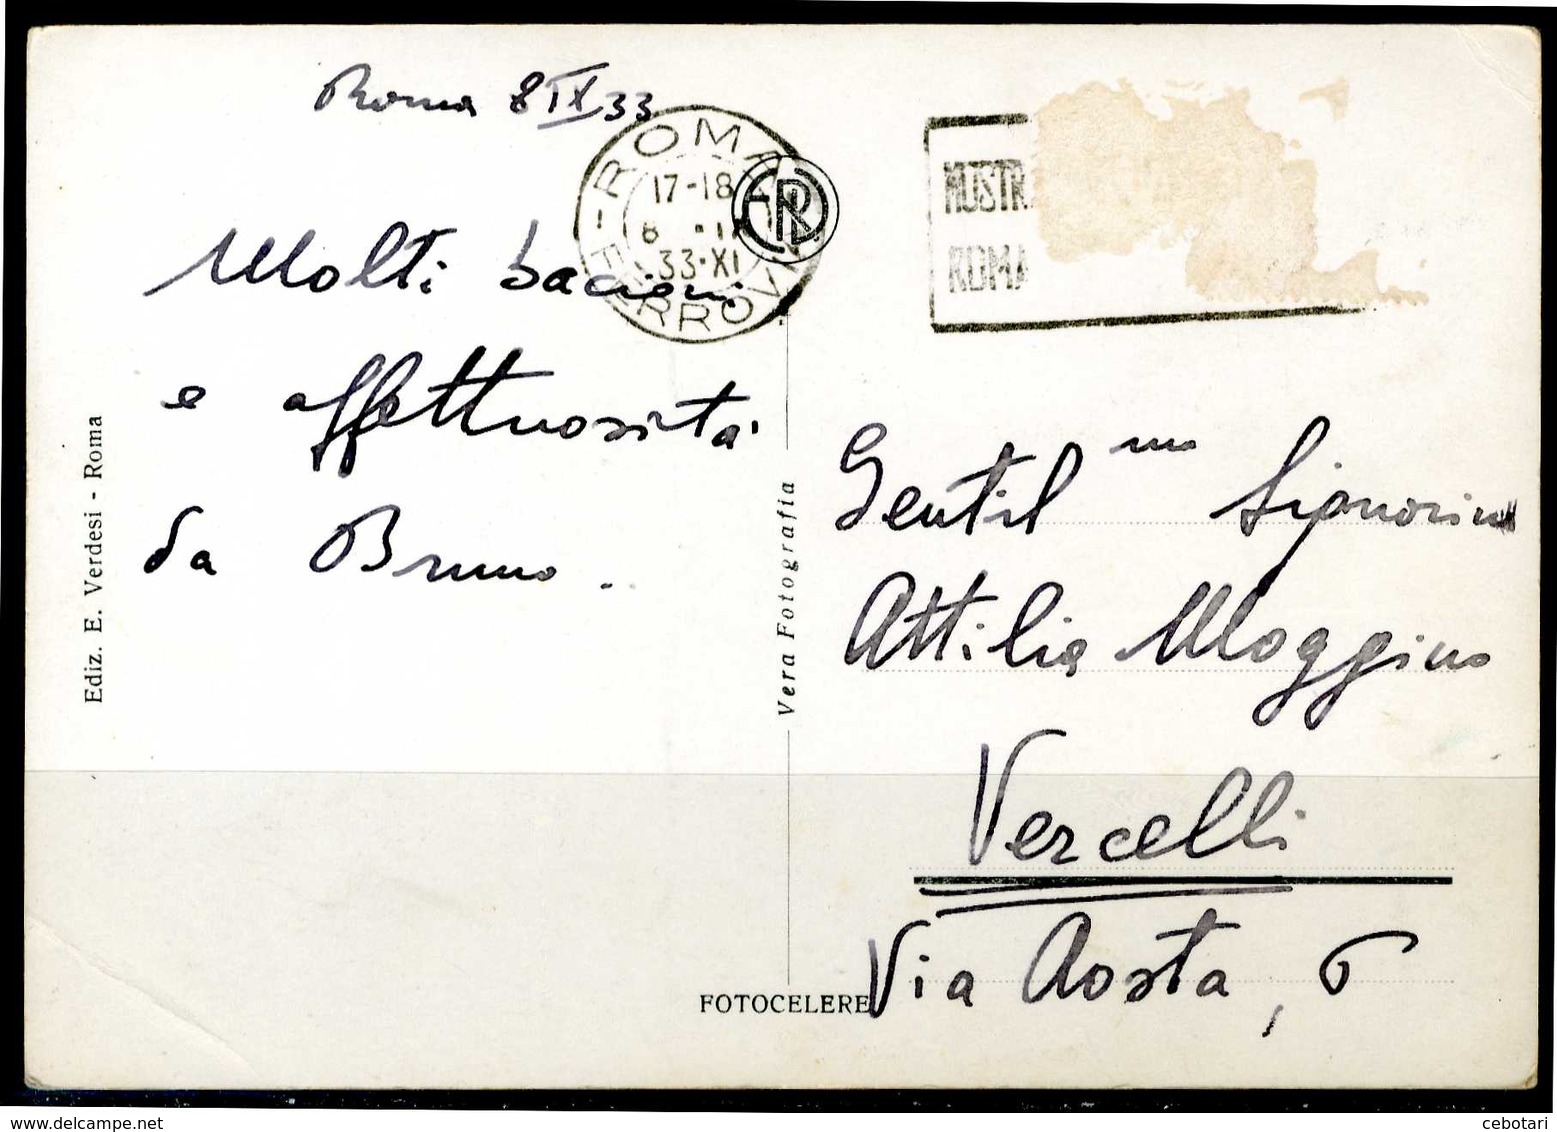 Roma 8 IX 33
ROMA
17-18
8 · IX
33·XI
FERROVIA
MOSTR
ROMA
Molti bacioni
e affettuosità
da Bruno.
Ediz. E. Verdesi - Roma
Vera Fotografia
Gentil mo Signorina
Attilia Moggino
Vercelli
Via Aosta, 6
FOTOCELERE
www.delcampe.net
cebotari